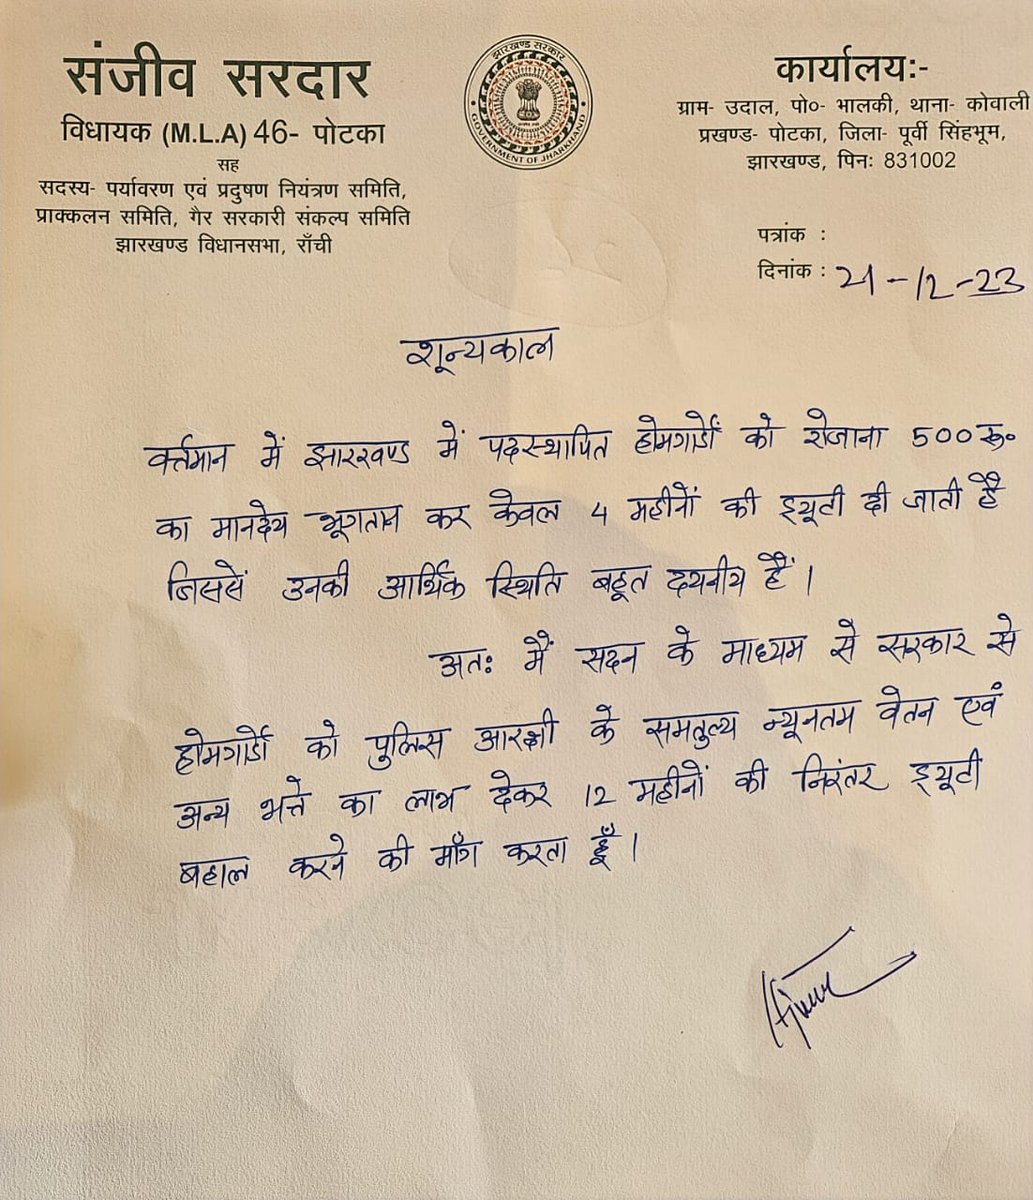 संजीव सरदार
विधायक (M.L.A) 46- पोटका
सह
सदस्य- पर्यावरण एवं प्रदुषण नियंत्रण समिति,
प्राक्कलन समिति, गैर सरकारी संकल्प समिति
झारखण्ड विधानसभा, राँची
झारखण्ड सरकार
GOVERNMENT OF JHARKHAND
कार्यालयः-
ग्राम- उदाल, पो०- भालकी, थाना- कोवाली
प्रखण्ड- पोटका, जिला- पूर्वी सिंहभूम,
झारखण्ड, पिनः 831002
पत्रांक :
दिनांक : 21-12-23
शून्यकाल
वर्त्तमान में झारखण्ड में पदस्थापित होमगार्डों को रोजाना 500 रू०
का मानदेय भूगतान कर केवल 4 महीनों की ड्यूटी दी जाती है
जिससें उनकी आर्थिक स्थिति बहूत दयनीय हैं।
अतः मैं सदन के माध्यम से सरकार से
होमगार्डो को पुलिस आरक्षी के समतुल्य न्यूनतम वेतन एवं
अन्य भत्ते का लाभ देकर 12 महीनों की निरंतर ड्यूटी
बहाल करने की माँग करता हूँ।